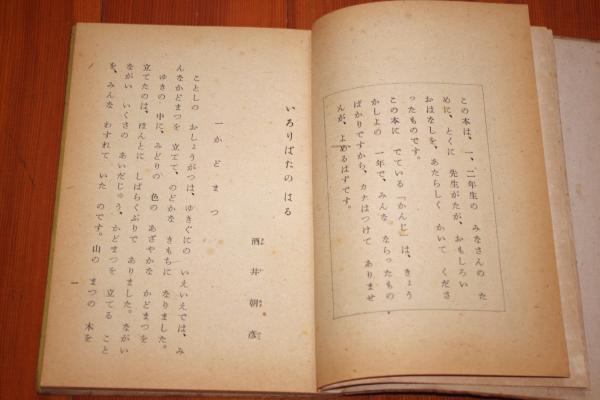 この本は、一、二年生の みなさんの た
めに、とくに 先生がたが、おもしろい
おはなしを、あたらしく かいて くださ
ったものです。
この本に でている「かんじ」は、きょう
かしよの 一年で、みんな ならったもの
ばかりですから、カナはつけて ありませ
んが、よめるはずです。
いろりばたの はる
酒井朝彦
一 かどまつ
ことしの おしょうがつは、ゆきぐにの いえいえでは、み
んなかどまつを 立てて、のどかな きもちに なりました。
ゆきの 中に、みどりの 色の あざやかな かどまつを
立てたのは、ほんとに しばらくぶりで ありました。ながい
ながい いくさの あいだじゅう、かどまつを 立てる こと
を、みんな わすれて いた のです。山の まつの 木を
一